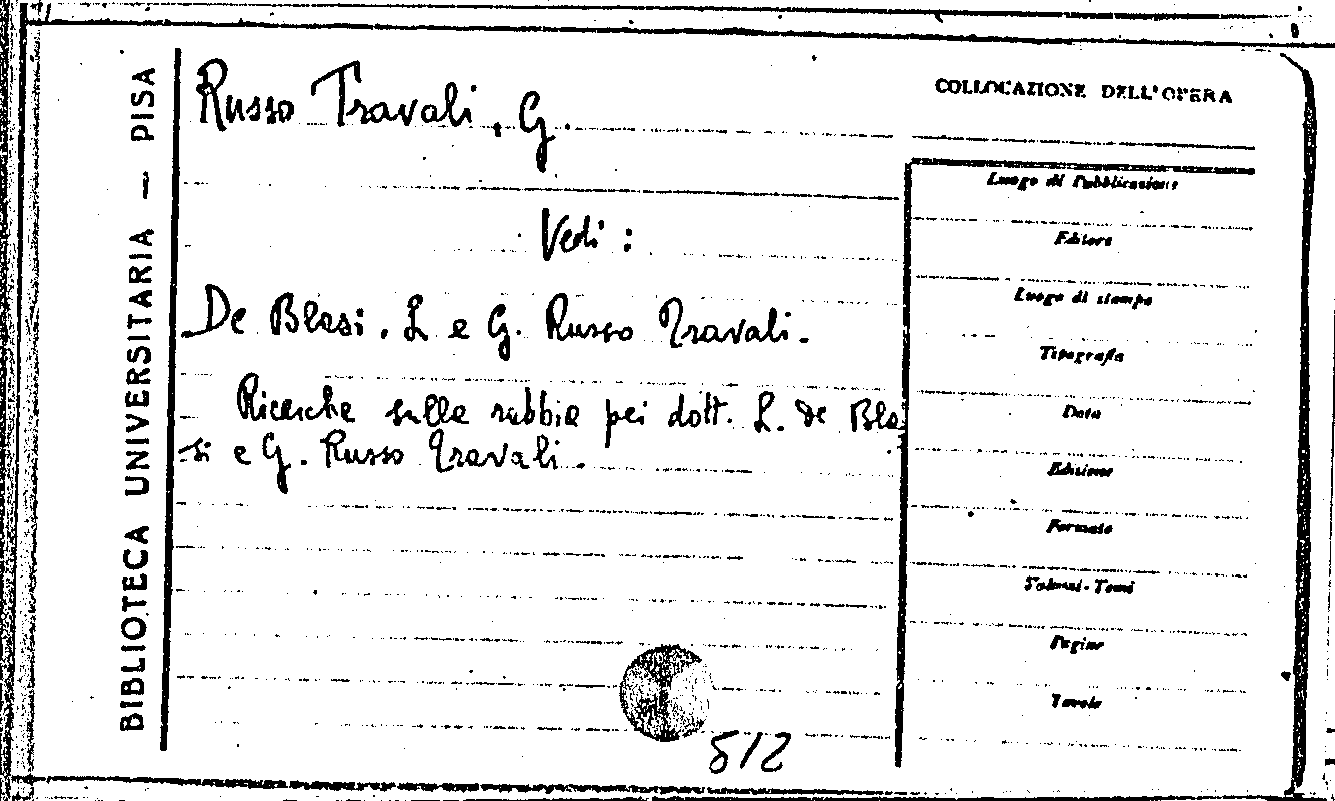 BIBLIOTECA UNIVERSITARIA — PISA
Russo Travali, G.
Vedi :
De Blasi, L e G. Russo Travali.
Ricerche sulla rabbia pei dott. L. de Bla
si e G. Russo Travali.
512
COLLOCAZIONE DELL'OPERA
Luogo di Pubblicazione
Editore
Luogo di stampa
Tipografia
Data
Edizione
Formato
Volumi-Tomi
Pagine
Tavole